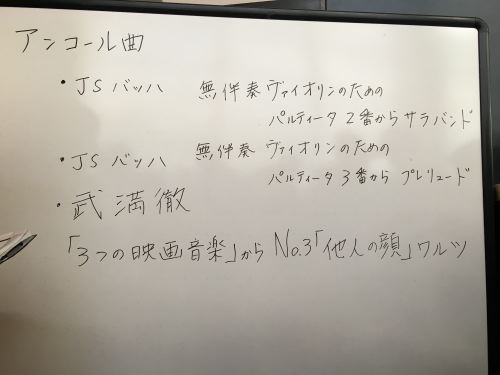 アンコール曲
・JSバッハ 無伴奏ヴァイオリンのための
パルティータ2番からサラバンド
・JSバッハ 無伴奏ヴァイオリンのための
パルティータ3番から プレリュード
・武満徹
「3つの映画音楽」から No.3「他人の顔」ワルツ